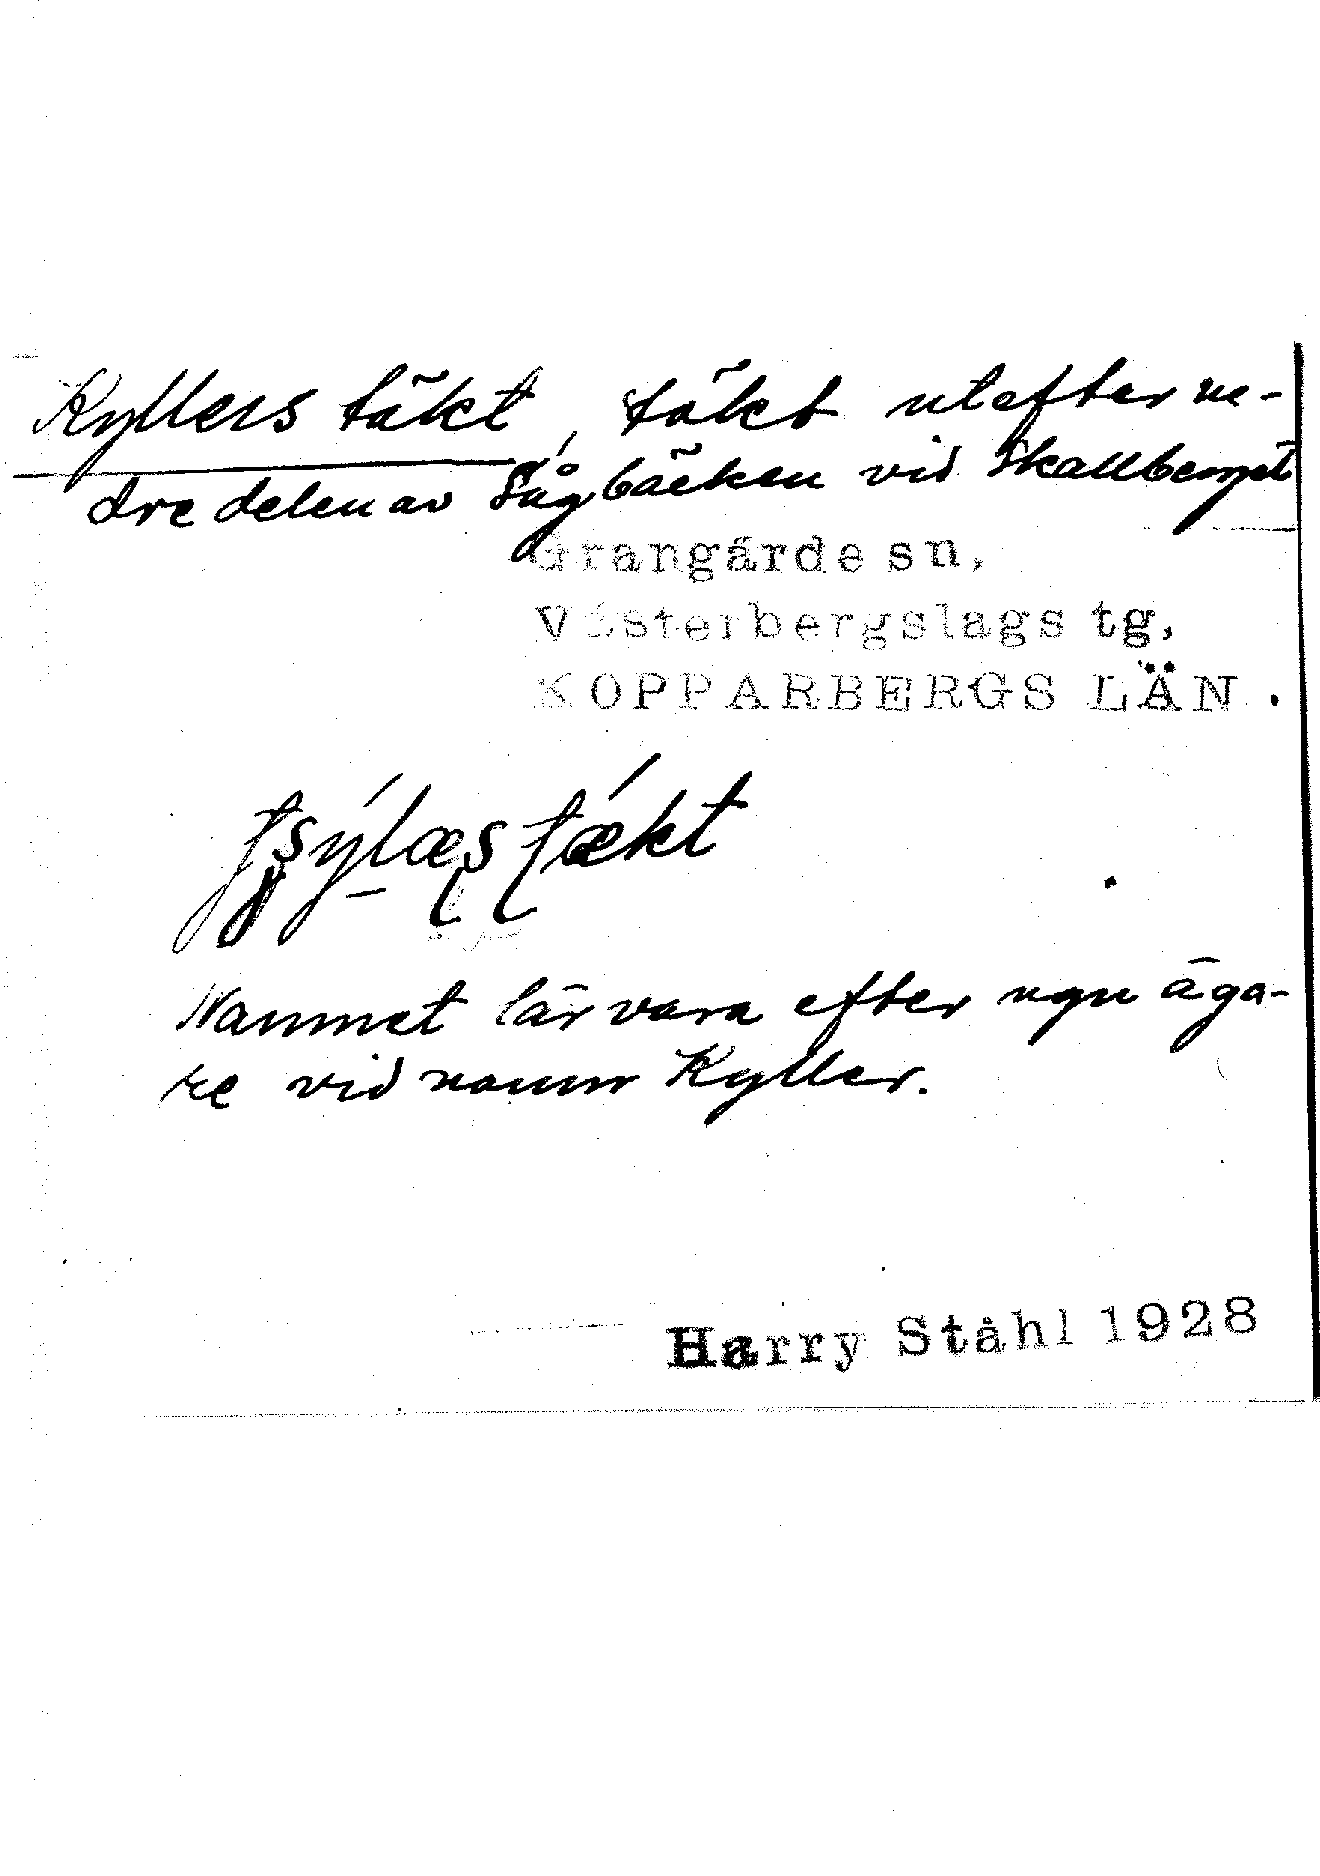 Kyllers täkt, täkt utefter ne-
dre delen av Sågbäcken vid Skallberget
Grangärde sn,
Västerbergslags tg,
KOPPARBERGS LÄN.
Namnet lär vara efter ngn äga-
re vid namn Kyller.
Harry Ståhl 1928